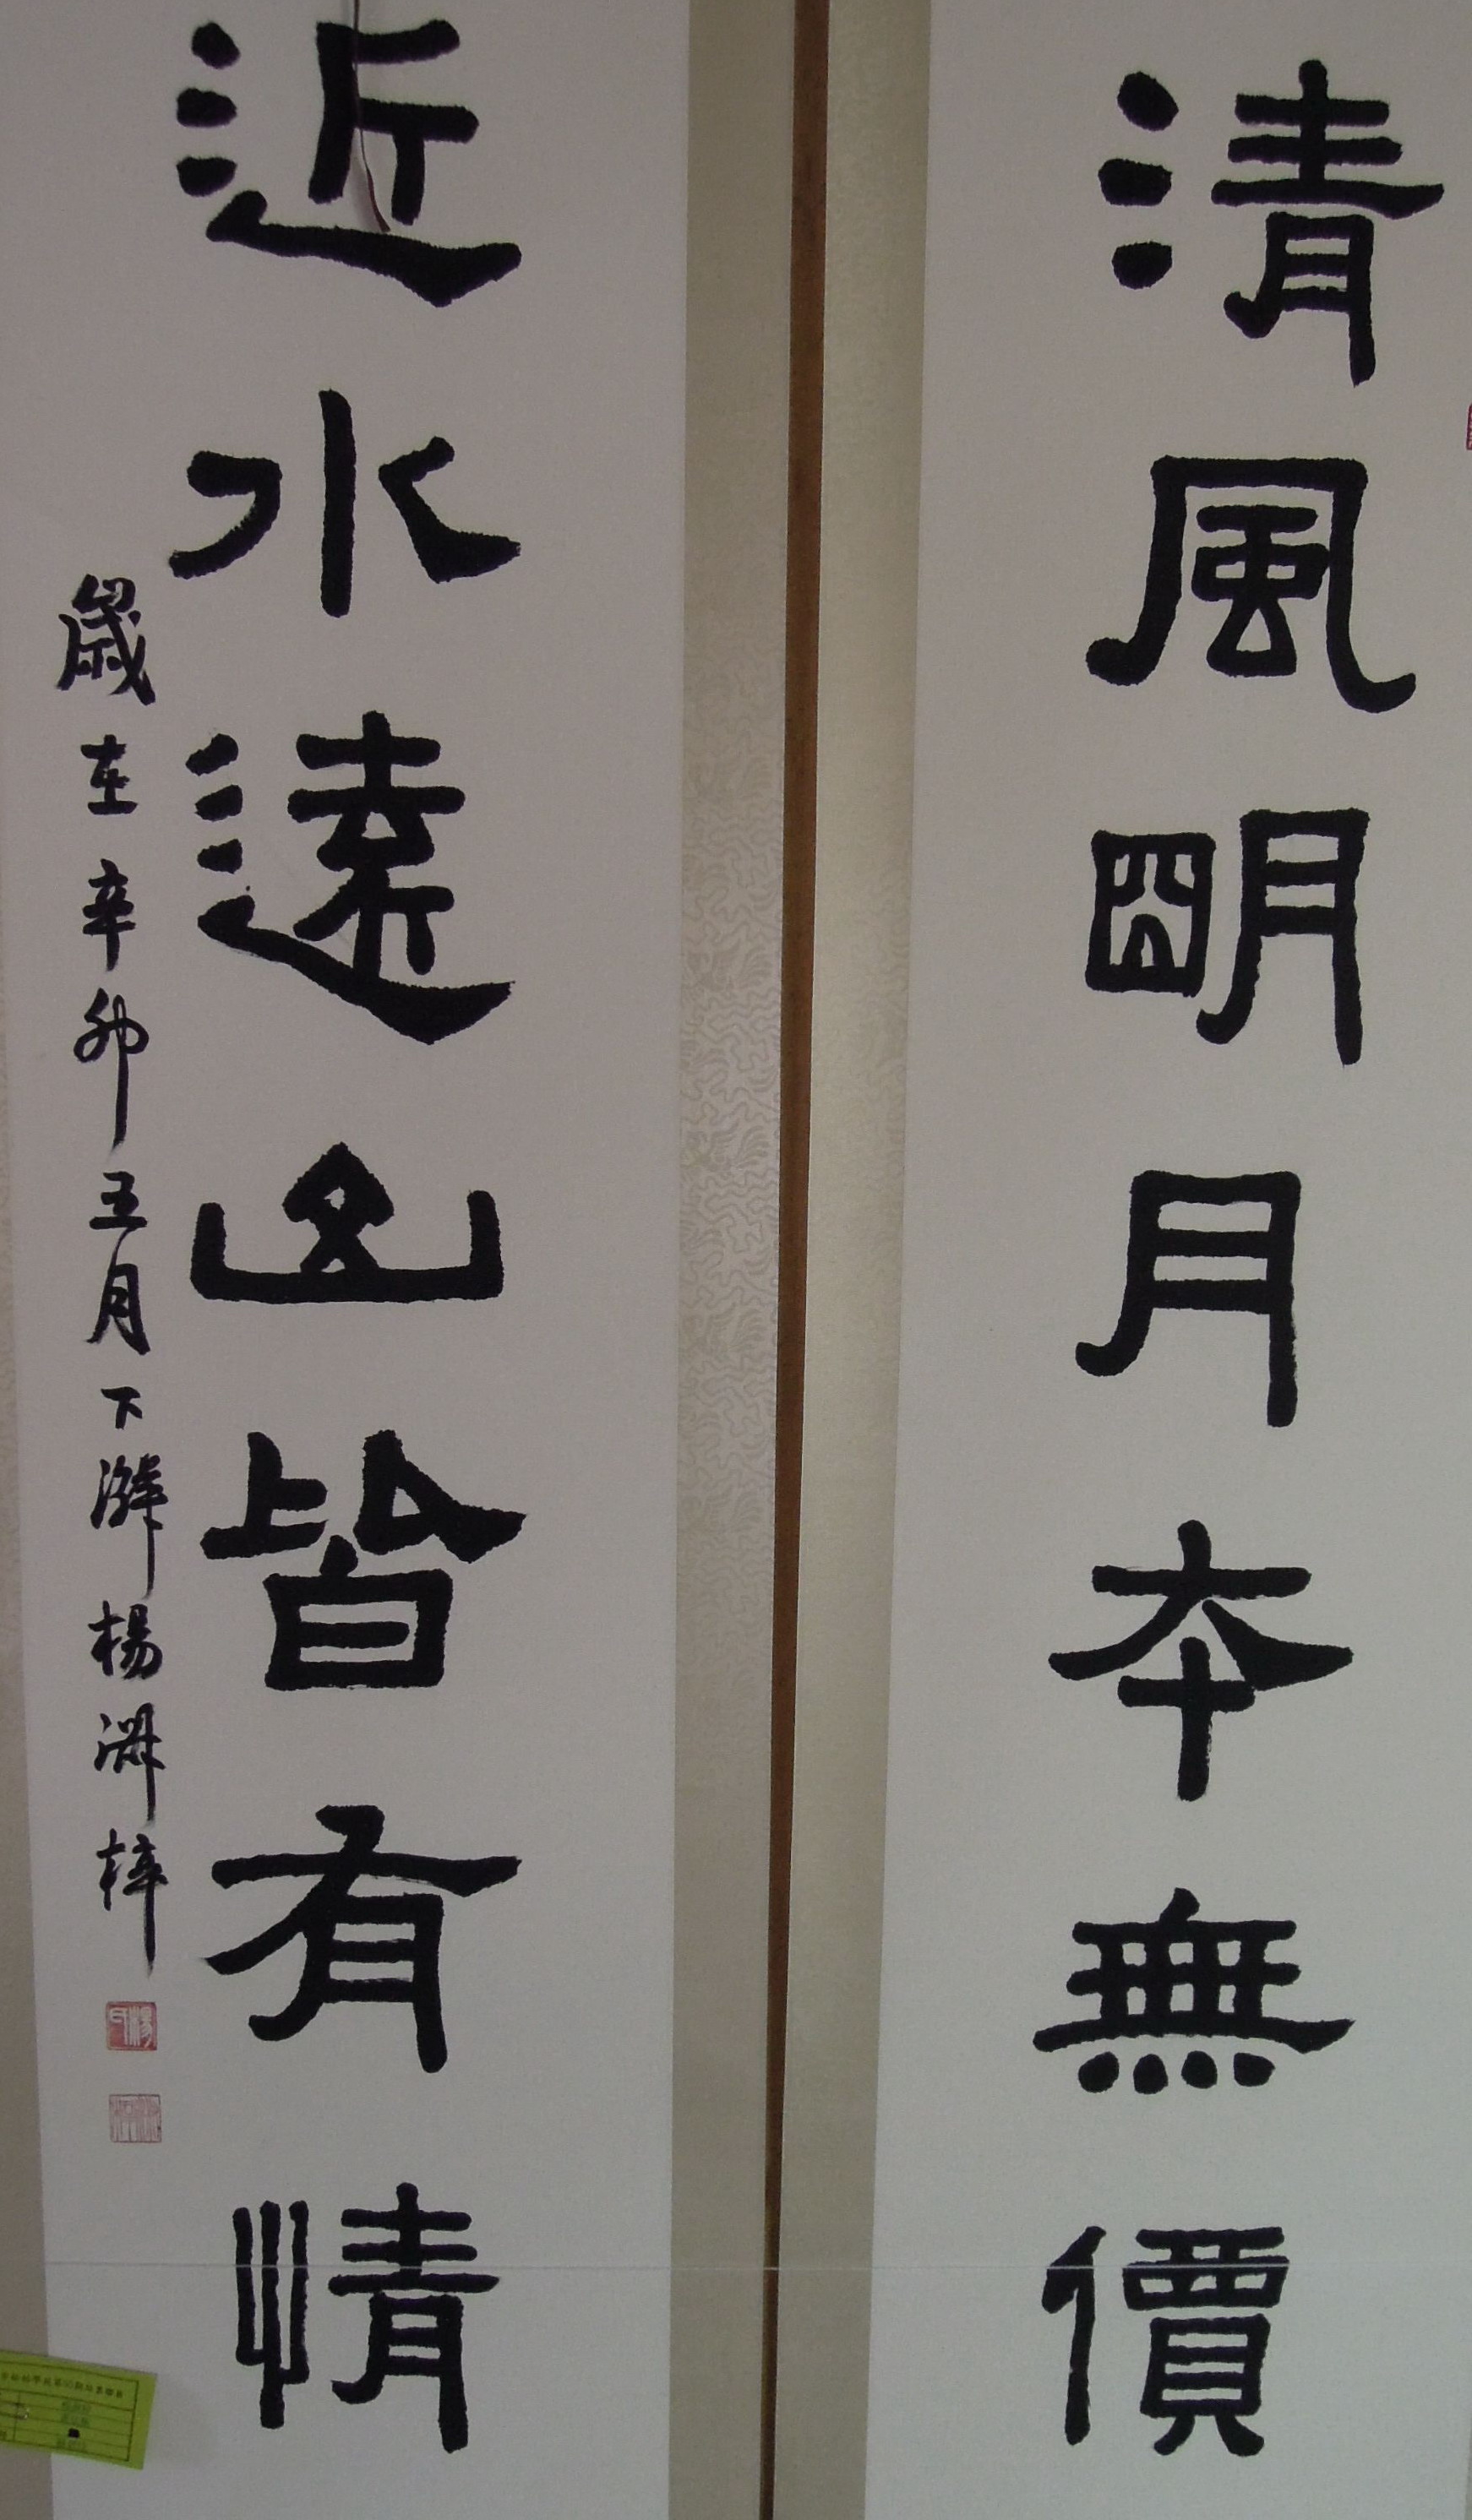 清風明月本無價
近水遠山皆有情
歲在辛卯五月下澣楊淵梓